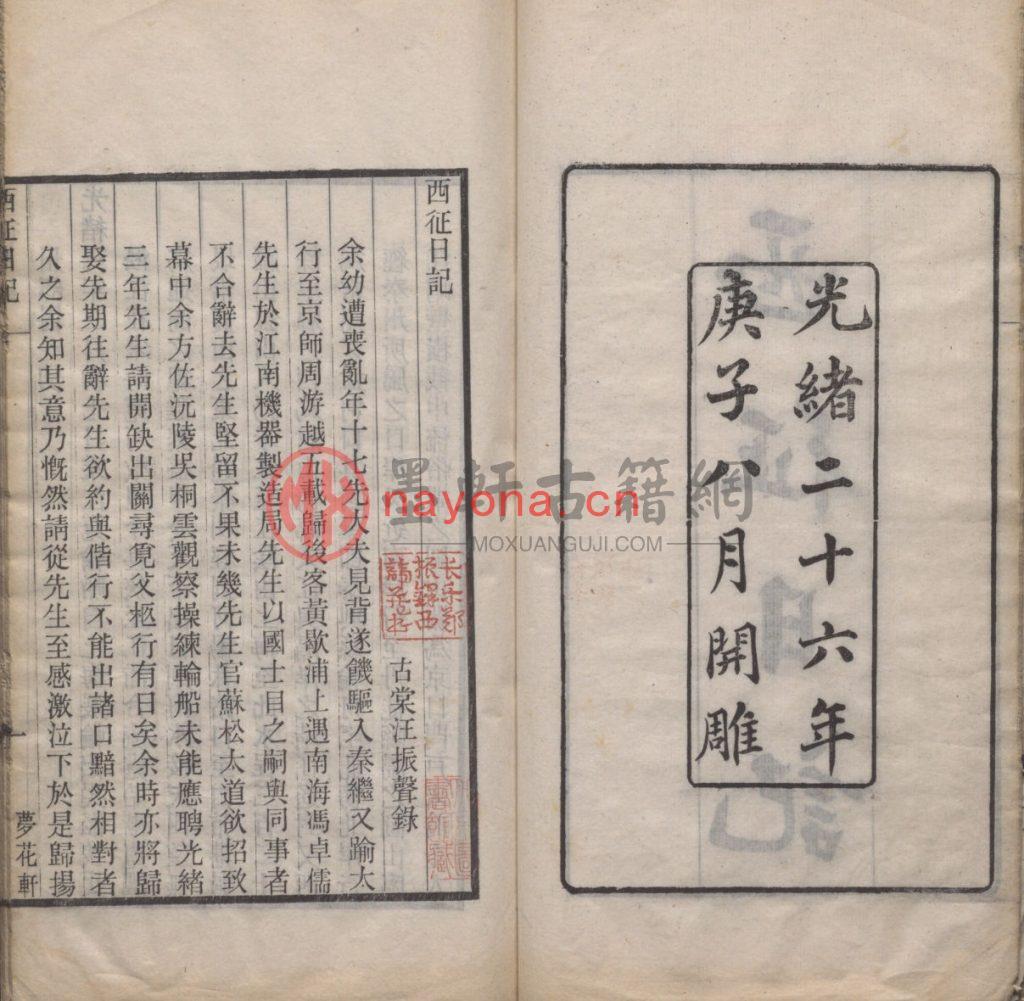 光緒二十六年
庚子八月開雕
西征日記
古棠汪振聲錄
余幼遭喪亂年十七先大夫見背遂饑驅入秦繼又踰太
行至京師周游越五載歸後客黃歇浦上遇南海馮卓儒
先生於江南機器製造局先生以國士目之嗣與同事者
不合辭去先生堅留不果未幾先生官蘇松太道欲招致
幕中余方佐沅陵吳桐雲觀察操練輪船未能應聘光緒
三年先生請開缺出關尋覓父柩行有日矣余時亦將歸
娶先期往辭先生欲約與偕行不能出諸口黯然相對者
久之余知其意乃慨然請從先生至感激泣下於是歸揚
西征日記
一
夢花軒
長樂鄭
振鐸西
諦藏書
墨軒古籍網
nayona.cn
MOXUANGUJI.COM